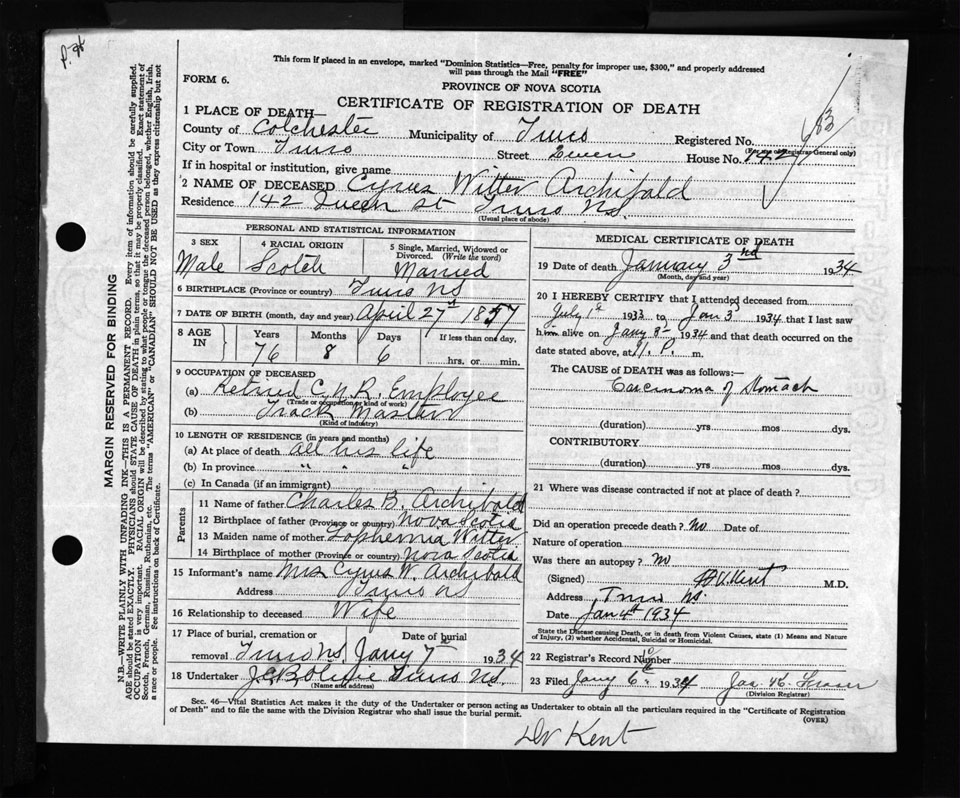 P. 96
This form if placed in an envelope, marked "Dominion Statistics—Free, penalty for improper use, $300," and properly addressed
will pass through the Mail "FREE"
FORM 6.
PROVINCE OF NOVA SCOTIA
CERTIFICATE OF REGISTRATION OF DEATH
1 PLACE OF DEATH—
County of Colchester Municipality of Truro Registered No. 683
(For use of Registrar-General only)
City or Town Truro Street Queen House No. 142
If in hospital or institution, give name
2 NAME OF DECEASED Cyrus Witter Archibald
Residence 142 Queen St Truro N.S.
(Usual place of abode)
PERSONAL AND STATISTICAL INFORMATION
3 SEX 4 RACIAL ORIGIN 5 Single, Married, Widowed or
Divorced. (Write the word)
Male Scotch Married
6 BIRTHPLACE (Province or country) Truro NS
7 DATE OF BIRTH (month, day and year) April 27th 1857
8 AGE IN Years Months Days If less than one day,
76 8 6 hrs. or min.
9 OCCUPATION OF DECEASED
(a) Retired C.N.R. Employee
(Trade or occupation or kind of work)
(b) Track Master
(Kind of industry)
10 LENGTH OF RESIDENCE (in years and months)
(a) At place of death all his life
(b) In province " " "
(c) In Canada (if an immigrant)
Parents
11 Name of father Charles B. Archibald
12 Birthplace of father (Province or country) Nova Scotia
13 Maiden name of mother Sophemia Witter
14 Birthplace of mother (Province or country) Nova Scotia
15 Informant's name Mrs Cyrus W. Archibald
Address Truro NS
16 Relationship to deceased Wife
17 Place of burial, cremation or Date of burial
removal Truro NS. Jany 7th 1934
18 Undertaker Truro NS.
(Name and address)
MEDICAL CERTIFICATE OF DEATH
19 Date of death January 3rd 1934
(Month, day and year)
20 I HEREBY CERTIFY that I attended deceased from
July 1st 1933 to Jan 3rd 1934 that I last saw
him alive on Jany 3rd 1934 and that death occurred on the
date stated above, at P. m.
The CAUSE of DEATH was as follows:—
Carcinoma of Stomach
(duration) yrs mos dys.
CONTRIBUTORY
(duration) yrs. mos. dys.
21 Where was disease contracted if not at place of death?
Did an operation precede death? No Date of
Nature of operation
Was there an autopsy? No
(Signed) Kent M.D.
Address Truro NS.
Date Jan 4th 1934
State the Disease causing Death, or in death from Violent Causes, state (1) Means and Nature
of Injury, (2) whether Accidental, Suicidal or Homicidal.
22 Registrar's Record Number
23 Filed Jany 6th 1934 Jas. K. Fraser
(Division Registrar)
Sec. 46—Vital Statistics Act makes it the duty of the Undertaker or person acting as Undertaker to obtain all the particulars required in the "Certificate of Registration
of Death" and to file the same with the Division Registrar who shall issue the burial permit.
(OVER)
Dr Kent
MARGIN RESERVED FOR BINDING
N.B.—WRITE PLAINLY WITH UNFADING INK—THIS IS A PERMANENT RECORD. Every item of information should be carefully supplied.
AGE should be stated EXACTLY. PHYSICIANS should STATE CAUSE OF DEATH in plain terms, so that it may be properly classified. Exact statement of
OCCUPATION is very important. RACIAL ORIGIN will be described by stating to what people or tongue the deceased person belonged, whether English, Irish,
Scotch, French, German, Russian, Ruthenian, etc. The terms "AMERICAN" or "CANADIAN" SHOULD NOT BE USED as they express citizenship but not
a race or people. See instructions on back of Certificate.